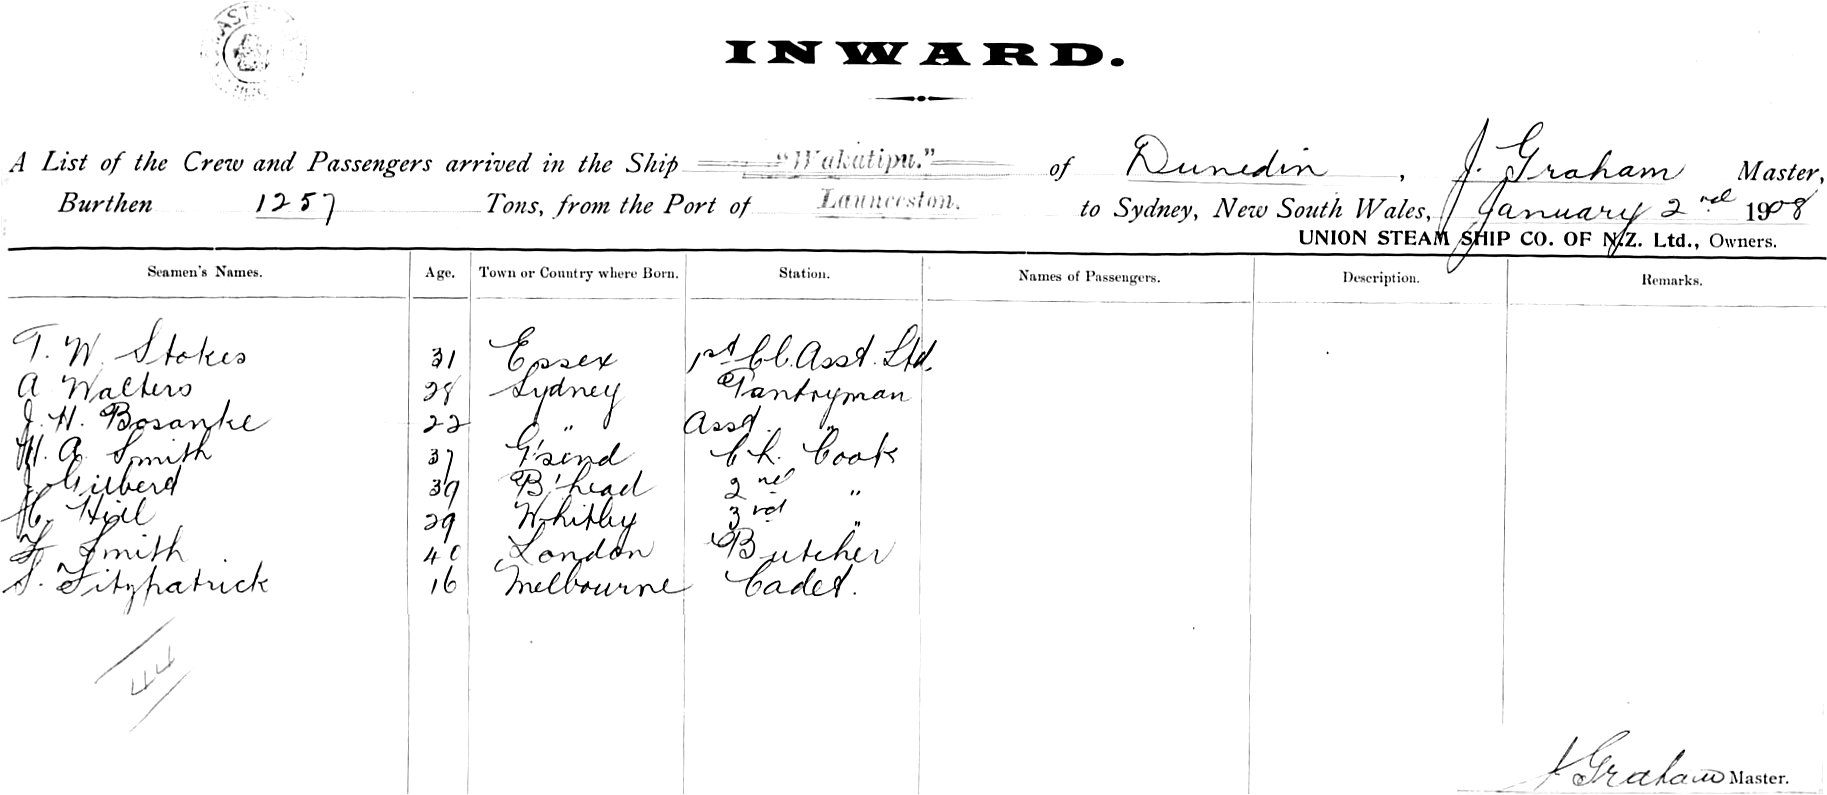 INWARD.
A List of the Crew and Passengers arrived in the Ship "Wakatipu." of Dunedin, J. Graham Master,
Burthen 1257 Tons, from the Port of Launceston. to Sydney, New South Wales, January 2nd 1908
UNION STEAM SHIP CO. OF N.Z. Ltd., Owners.
Seamen's Names. Age. Town or Country where Born. Station. Names of Passengers. Description. Remarks.
T. W. Stokes 31 Essex 1st Cl. Asst. Std.
A Walters 28 Sydney Pantryman
J. H. Bosanke 22 " Asst. "
H. A. Smith 37 G'send Ch. Cook
J. Gilberd 39 B'head 2nd "
H. Hill 29 Whitby 3rd "
F. Smith 40 London Butcher
S. Fitzpatrick 16 Melbourne Cadet.
44
J Graham Master.